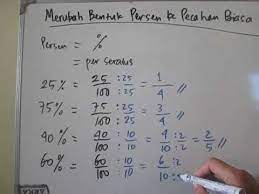 Merubah Bentuk Persen ke Pecahan Biasa
Persen = %
= per seratus
25% = 25/100 :25/:25 = 1/4 //
75% = 75/100 :25/:25 = 3/4 //
40% = 40/100 :10/:10 = 4/10 :2/:2 = 2/5 //
60% = 60/100 :10/:10 = 6/10 :2